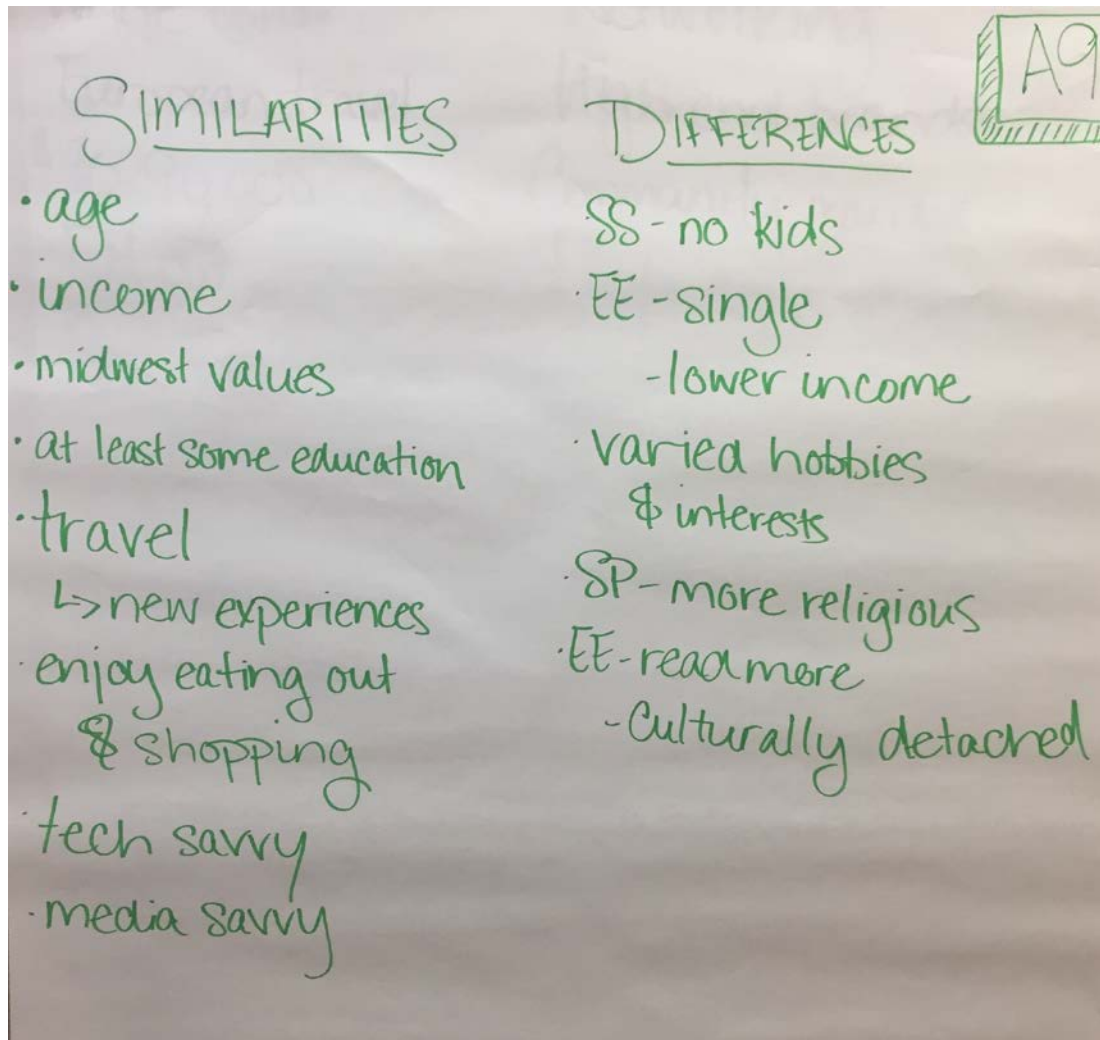 A9
SIMILARITIES
· age
· income
· midwest values
· at least some education
· travel
↳ new experiences
· enjoy eating out
& shopping
· tech savvy
· media savvy
DIFFERENCES
SS - no kids
· EE - single
- lower income
· varied hobbies
& interests
· SP - more religious
· EE - read more
- culturally detached